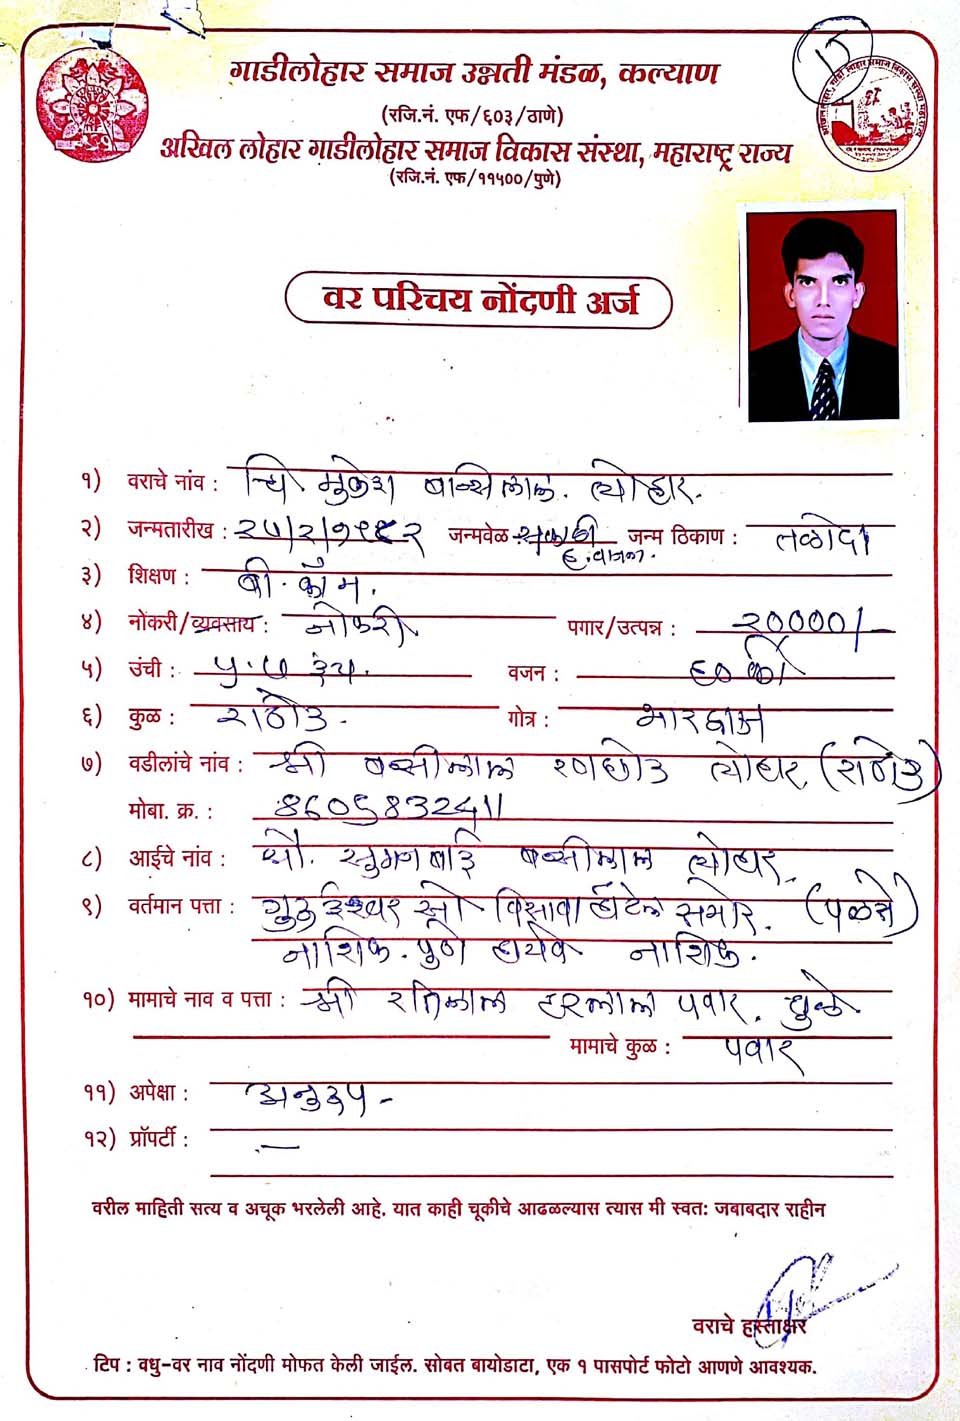 गाडीलोहार समाज उन्नती मंडळ, कल्याण
(रजि.नं. एफ/६०३/ठाणे)
अखिल लोहार गाडीलोहार समाज विकास संस्था, महाराष्ट्र राज्य
(रजि.नं. एफ/११५००/पुणे)
वर परिचय नोंदणी अर्ज
१) वराचे नांव : चि मुकेश बान्सिलाल. लोहार.
२) जन्मतारीख : २५/२/१९८२ जन्मवेळ : सकाळी ६.वाजता. जन्म ठिकाण : तळोदा
३) शिक्षण : बी. कॉम.
४) नोंकरी/व्यवसाय : नोकरी पगार/उत्पन्न : २००००/-
५) उंची : ५.७ इंच. वजन : ६० की
६) कुळ : राठोड - गोत्र : भारद्वाज
७) वडीलांचे नांव : श्री बन्सीलाल रणछोड लोहार. (राठोड)
मोबा. क्र. : 8605832411
८) आईचे नांव : सौ. सुगनबाई बन्सीलाल लोहार.
९) वर्तमान पत्ता : गुरु ईश्वर विसावा हॉटेल समोर. (पळसे)
नाशिक. पुणे हायवे नाशिक.
१०) मामाचे नाव व पत्ता : श्री रतिलाल हरलाल पवार. धुळे
मामाचे कुळ : पवार
११) अपेक्षा : अनुरुप -
१२) प्रॉपर्टी : —
वरील माहिती सत्य व अचूक भरलेली आहे. यात काही चूकीचे आढळल्यास त्यास मी स्वतः जबाबदार राहीन
वराचे हस्ताक्षर
टिप : वधु-वर नाव नोंदणी मोफत केली जाईल. सोबत बायोडाटा, एक १ पासपोर्ट फोटो आणणे आवश्यक.